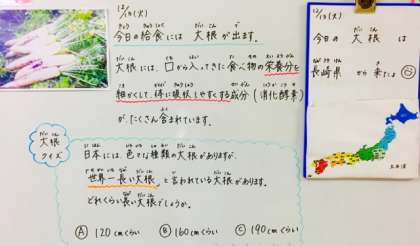 12/13(火)
今日の給食には 大根が出ます。
大根には、口から入ってきた食べ物の栄養分を
細かくして、体に吸収しやすくする成分(消化酵素)
が、たくさん含まれています。
大根
クイズ
日本には、色々な種類の大根がありますが、
世界一長い大根。と言われている大根があります。
どれくらい長い大根でしょうか。
Ⓐ 120cmくらい Ⓑ 160cmくらい Ⓒ 190cmくらい
12/13(火)
今日の 大根 は
長崎県 から 来たよ